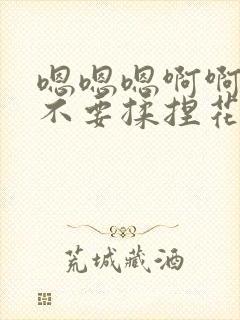 嗯嗯嗯啊啊
不要揉捏花
荒城藏酒